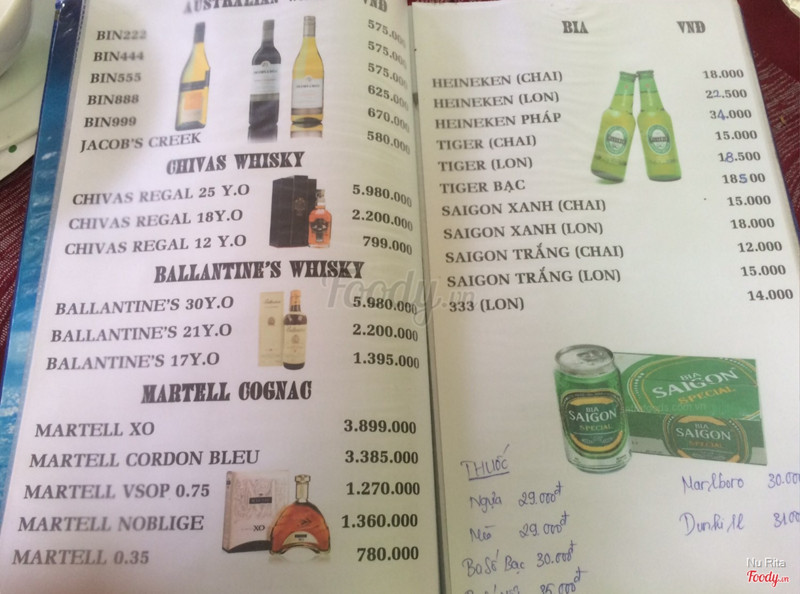 AUSTRALIAN
VND
BIN222 575.000
BIN444 575.000
BIN555 575.000
BIN888 625.000
BIN999 670.000
JACOB'S CREEK 580.000
CHIVAS WHISKY
CHIVAS REGAL 25 Y.O 5.980.000
CHIVAS REGAL 18Y.O 2.200.000
CHIVAS REGAL 12 Y.O 799.000
BALLANTINE'S WHISKY
BALLANTINE'S 30Y.O 5.980.000
BALLANTINE'S 21Y.O 2.200.000
BALANTINE'S 17Y.O 1.395.000
MARTELL COGNAC
MARTELL XO 3.899.000
MARTELL CORDON BLEU 3.385.000
MARTELL VSOP 0.75 1.270.000
MARTELL NOBLIGE 1.360.000
MARTELL 0.35 780.000
XO
BIA VND
HEINEKEN (CHAI) 18.000
HEINEKEN (LON) 22.500
HEINEKEN PHÁP 34.000
TIGER (CHAI) 15.000
TIGER (LON) 18.500
TIGER BẠC 18500
SAIGON XANH (CHAI) 15.000
SAIGON XANH (LON) 18.000
SAIGON TRẮNG (CHAI) 12.000
SAIGON TRẮNG (LON) 15.000
333 (LON) 14.000
BIA
SAIGON
SPECIAL
BIA
SAIGON
SPECIAL
BIA
SAIGON
SPECIAL
THUỐC
Ngựa 29.000đ
Mèo 29.000đ
Ba Số Bạc 30.000đ
Marlboro 30.000
Foody.vn
Nu Rita
Foody.vn